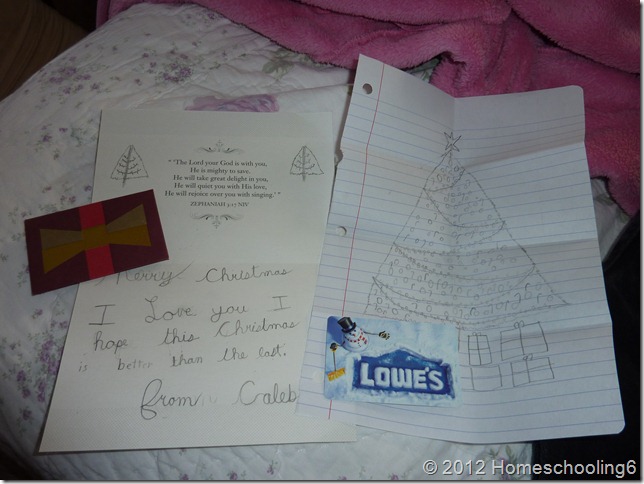 "The Lord your God is with you,
He is mighty to save.
He will take great delight in you,
He will quiet you with His love,
He will rejoice over you with singing."
ZEPHANIAH 3:17 NIV
Merry Christmas
I Love you I
hope this Christmas
is better than the last.
from Caleb
LOWE'S
© 2012 Homeschooling6